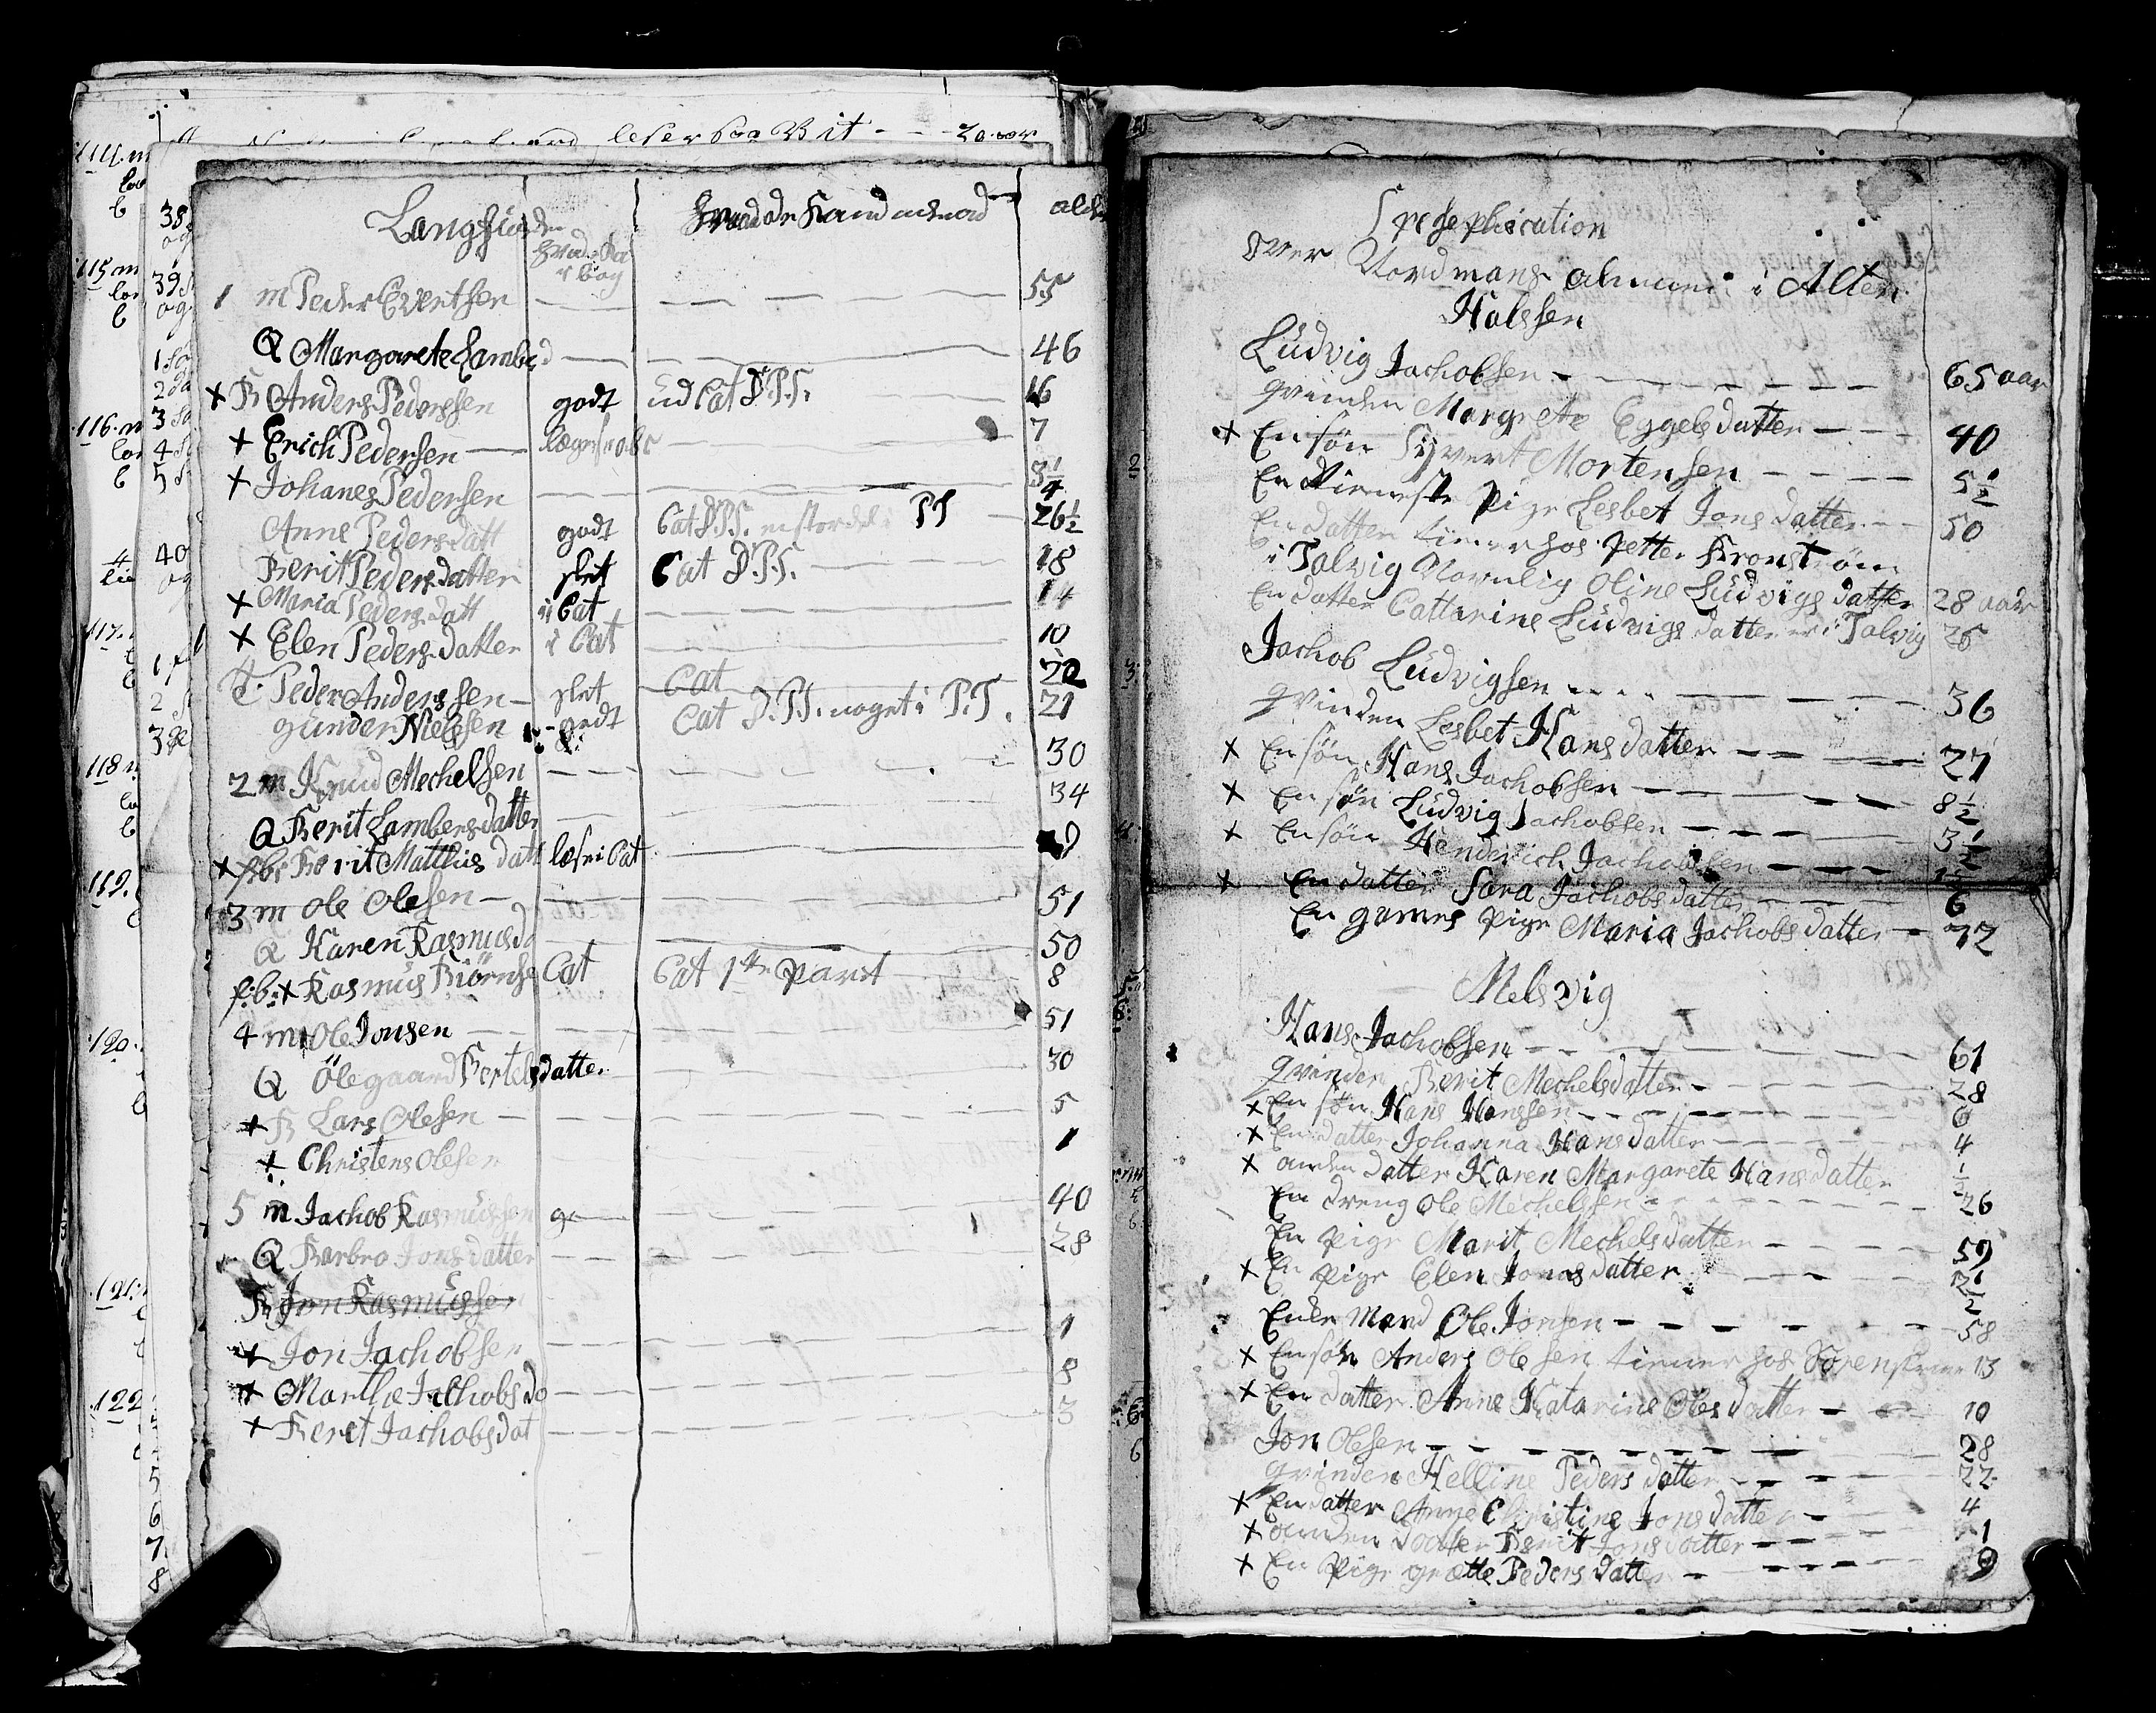 læser paa Bit - - - 20 aar
114. m
115 m
116. m
117.
118
119.
120.
121
122
38
39
1
2
3
4
5
40
1
2
3
5
6
7
8
Langfiorden
hvad de kand udenad
alder
i bog
1 m Peder Evertsen — — — 55
Q Margarete Lambed — — 46
+ B Anders Pedersen godt ud Cat D.P.S. — 16
+ Erich Pedersen — — 7
+ Johanes Pedersen — — 3 1/4
Anne Pedersdatt godt Cat D.P.S. en stor deel i PS — 26 1/2
Berit Pedersdatter slet Cat D.P.S. — 18
+ Maria Pedersdatt i Cat — 14
+ Elen Pedersdatter i Cat — 10
T. Peder Anderssen — slet Cat — 22
gunder Nielssen - godt Cat D.P.S. noget i P.S. 21
2 m Knud Mechelsen — — 30
Q Berit Lambersdatter — — 34
+ f:b: Berit Matthisdatt læser i Cat — 9
3 m Ole Olesen — — 51
Q Karen Rasmusda — — 50
f:b: + Rasmus Biörnse Cat Cat 1ste part 8
4 m Ole Jonsen — — 51
Q Ölegaard Bertelsdatter — 30
+ B Lars Olesen — — 5
+ Christens Olesen — 1
5 m Jachob Rasmussen g — 40
Q Barbro Jonsdatter — — 28
B Jon Rasmussen
+ Jon Jachobsen — — 1
+ Marthe Jachobsda — — 8
+ Beret Jachobsdat — — 3
Spesephication
over Nordmans almue i Alten
Halssen
Ludvig Jachobsen - - - - 65 aar
qvinden Margrete Eggelsdatter - - - 40
+ En sön Syvert Mortensen - - - 5 1/2
En tieneste pige Lesbet Jonsdatter - - 50
En datter tiener hos Petter Kronström
i Talvig Navnlig Oline Ludvigsdatter 28 aar
En datter Cattarine Ludvigsdatter er i Talvig 26
Jachob Ludvigsen - - - - 36
qvinden Lesbet Hansdatter - - - 27
+ En sön Hans Jachobsen - - - 8 1/2
+ En sön Ludvig Jachobsen - - - 3 1/2
+ En sön Hendrich Jachobsen - - -
+ En datter Sara Jachobsdatter - - - 6
En gamel pige Maria Jachobsdatter - 72
Melsvig
Hans Jachobsen - - - 61
qvinden Berit Mechelsdatter - - - 28
+ En sön Hans Hanssen - - - 6
+ En datter Johanna Hansdatter - - - 4
+ anden datter Karen Margarete Hansdatter 1/2
En dreng Ole Mechelsen - - - 26
En pige Marit Mechelsdatter - - - 59
+ En pige Elen Jonasdatter - - - 2 1/2
Enke Mand Ole Jonsen - - - 58
+ En sön Anders Olesen tiener hos 13
+ En datter Anne Katarine Olesdatter - - 10
Jon Olesen - - - 28
qvinden Helline Pedersdatter - - - 22
+ En datter Anne Christine Jonsdatter - 4
+ anden datter Berit Jonsdatter - - - 1
+ En pige grætte Pedersdatter - - - 9